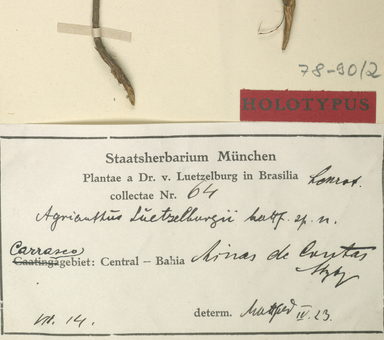 78-90/2
HOLOTYPUS
Staatsherbarium München
Plantae a Dr. v. Luetzelburg in Brasilia
collectae Nr. 64
Agrianthus Luetzelburgii Mattf. sp. n.
Carrasco
Caatingagebiet: Central – Bahia Minas de Contas
determ. Mattfeld IV. 23.
VII. 14.